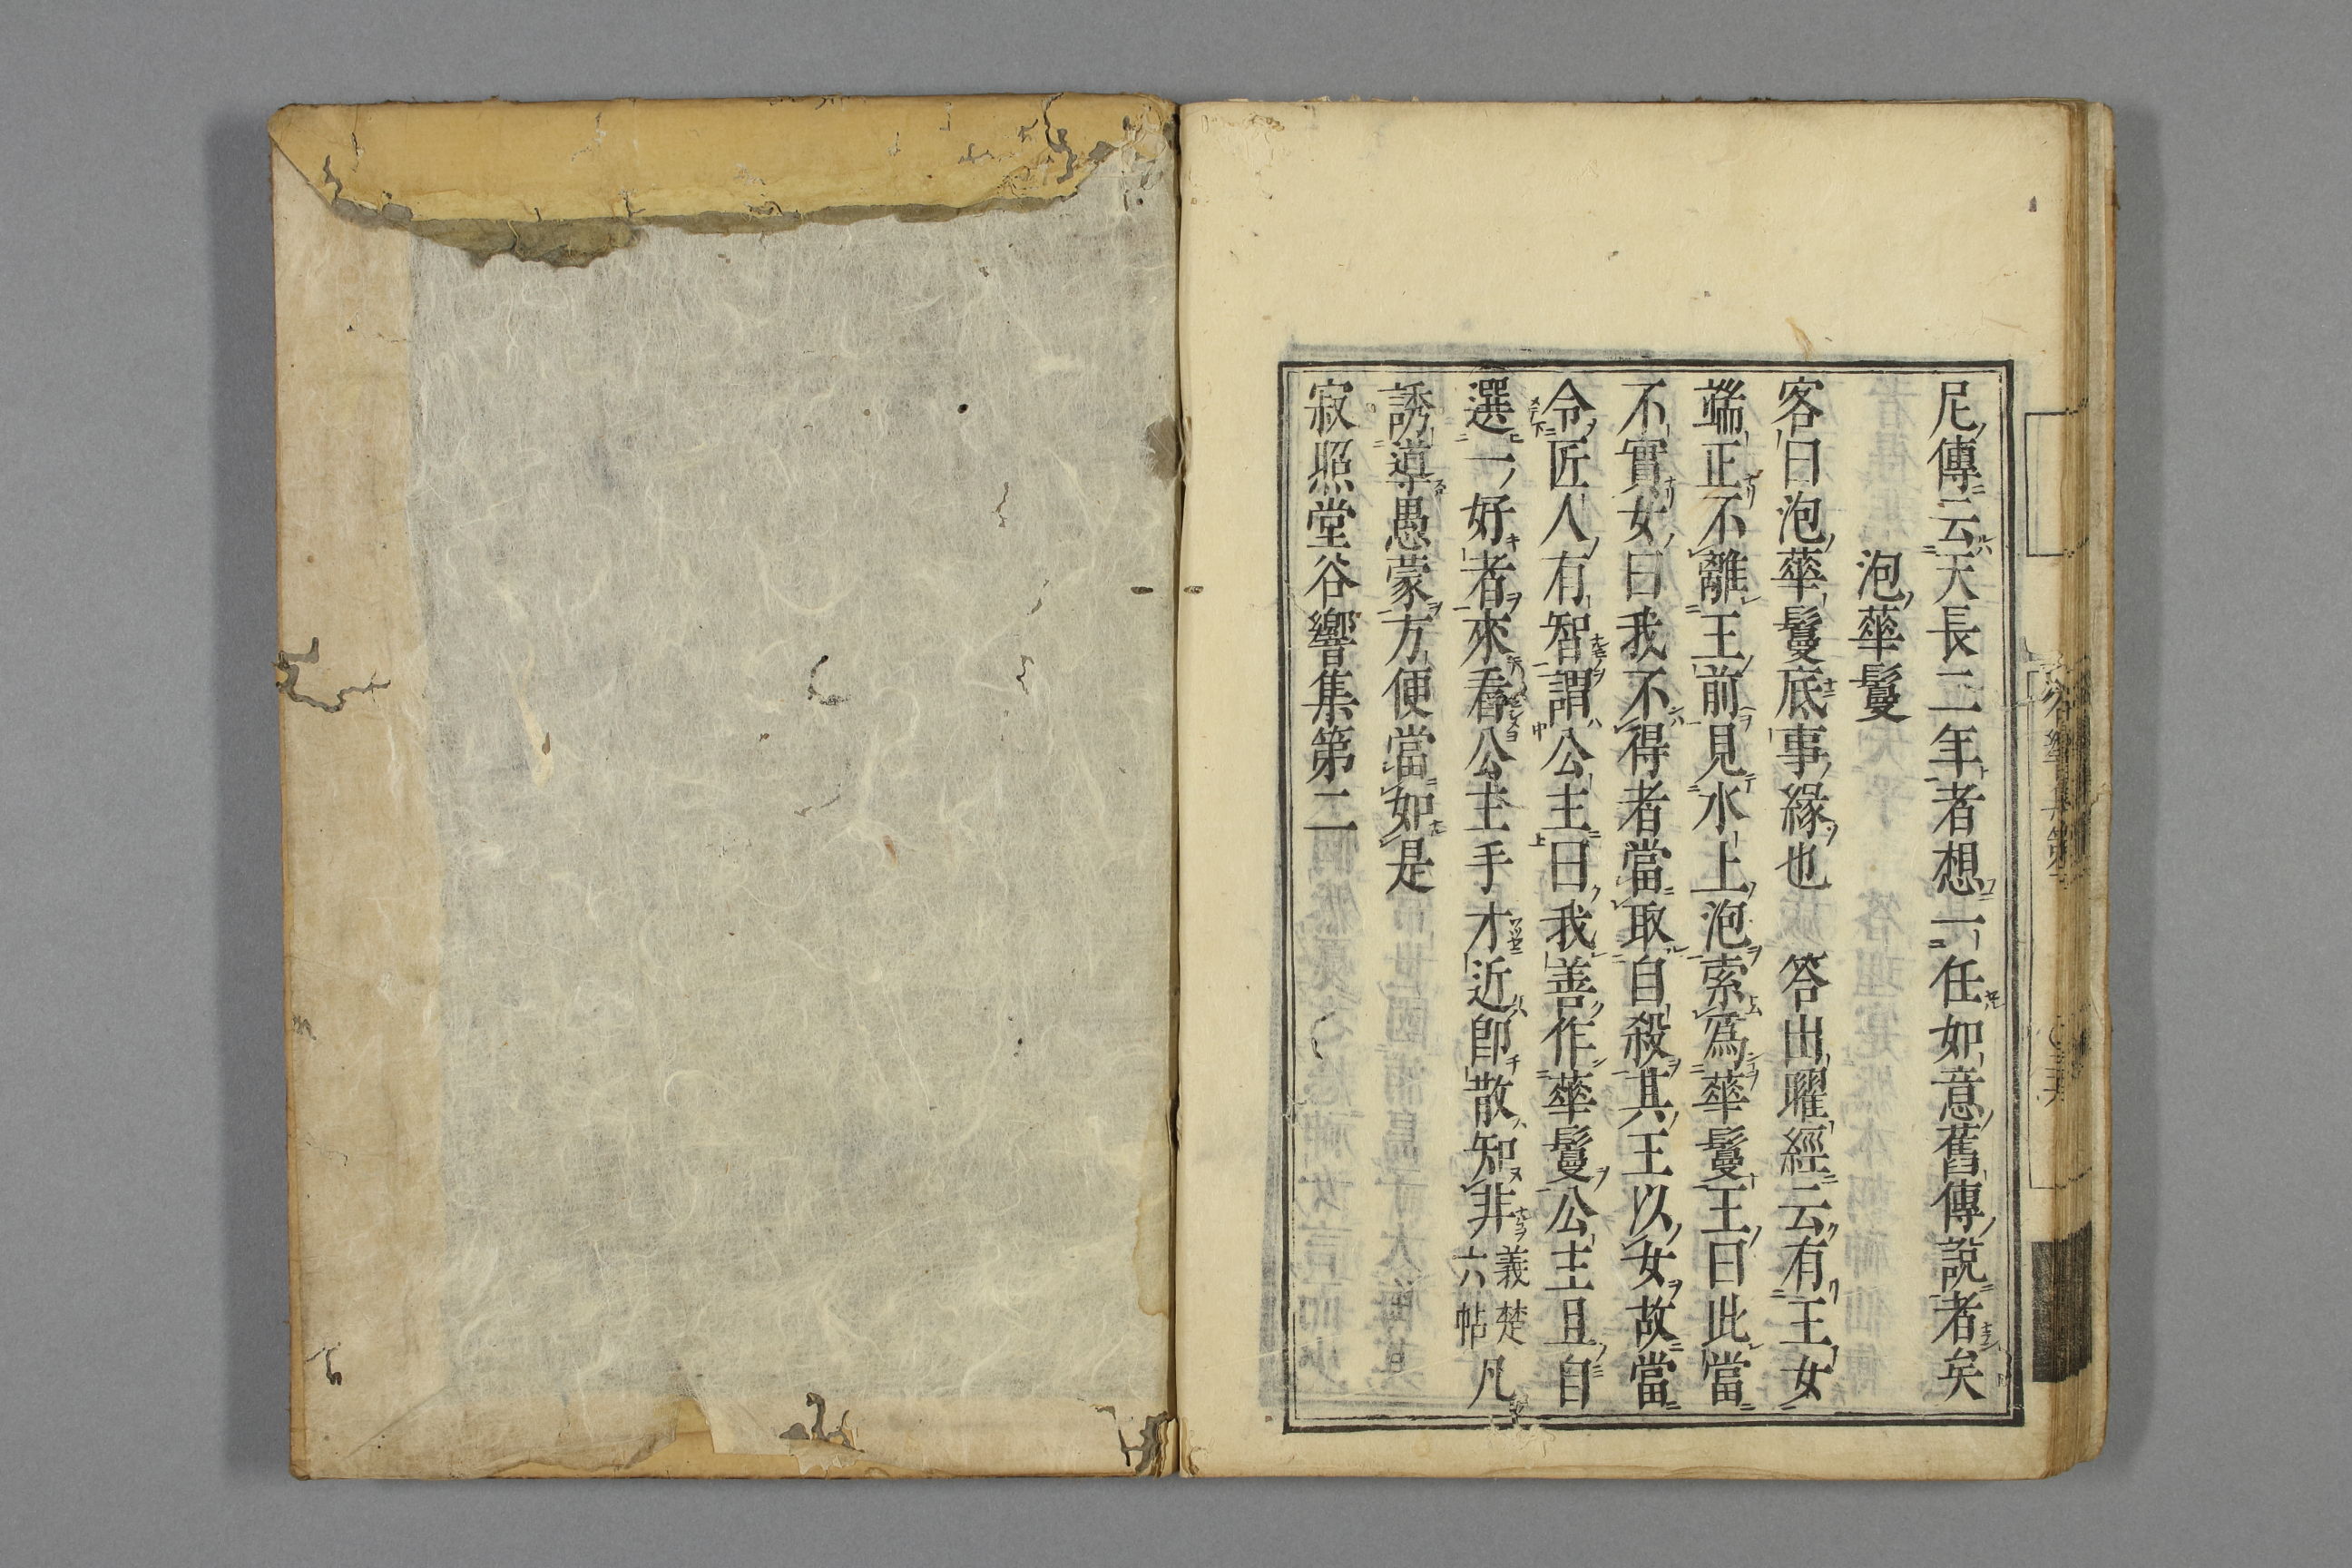 尼傳云天長二年者想一任如意舊傳說者矣
泡華鬘
客曰泡華鬘底事緣也　答出曜經云有王女
端正不離王前見水上泡索爲華鬘王曰此當
不實女曰我不得者當取自殺其王以女故當
令匠人有智謂公主曰我善作華鬘公主且自
選一好者來看公主手才近卽散知非義楚六帖凡
誘導愚蒙方便當如是
寂照堂谷響集第二